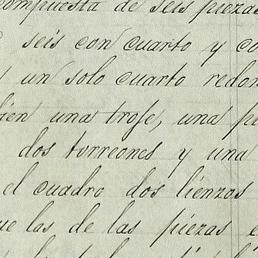 compuesta de seis piezas
seis con cuarto y co
un solo cuarto redon
bien una troje, una pe
dos torreones y una
el cuadro dos lienzos
ue las de las piezas e